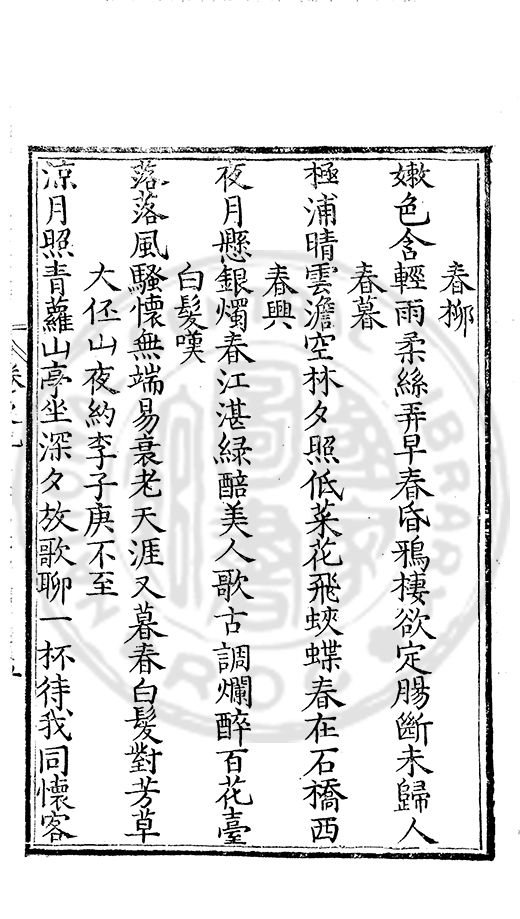 春柳
嫩色含輕雨柔絲弄早春昏鴉棲欲定腸斷未歸人
春暮
極浦晴雲澹空林夕照低菜花飛蛺蝶春在石橋西
春興
夜月懸銀燭春江湛綠醅美人歌古調爛醉百花臺
白髮嘆
落落風騷懷無端易衰老天涯又暮春白髮對芳草
大伾山夜約李子庚不至
涼月照青蘿山亭坐深夕放歌聊一杯待我同懷客